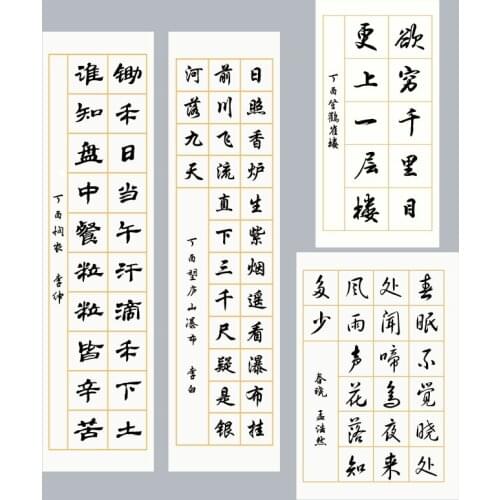 锄禾日当午汗滴禾下土
谁知盘中餐粒粒皆辛苦
丁酉悯农 李绅
日照香炉生紫烟遥看瀑布挂
前川飞流直下三千尺疑是银
河落九天
丁酉望庐山瀑布 李白
欲穷千里目
更上一层楼
丁酉登鹳雀楼
春眠不觉晓处
处闻啼鸟夜来
风雨声花落知
多少
春晓 孟浩然